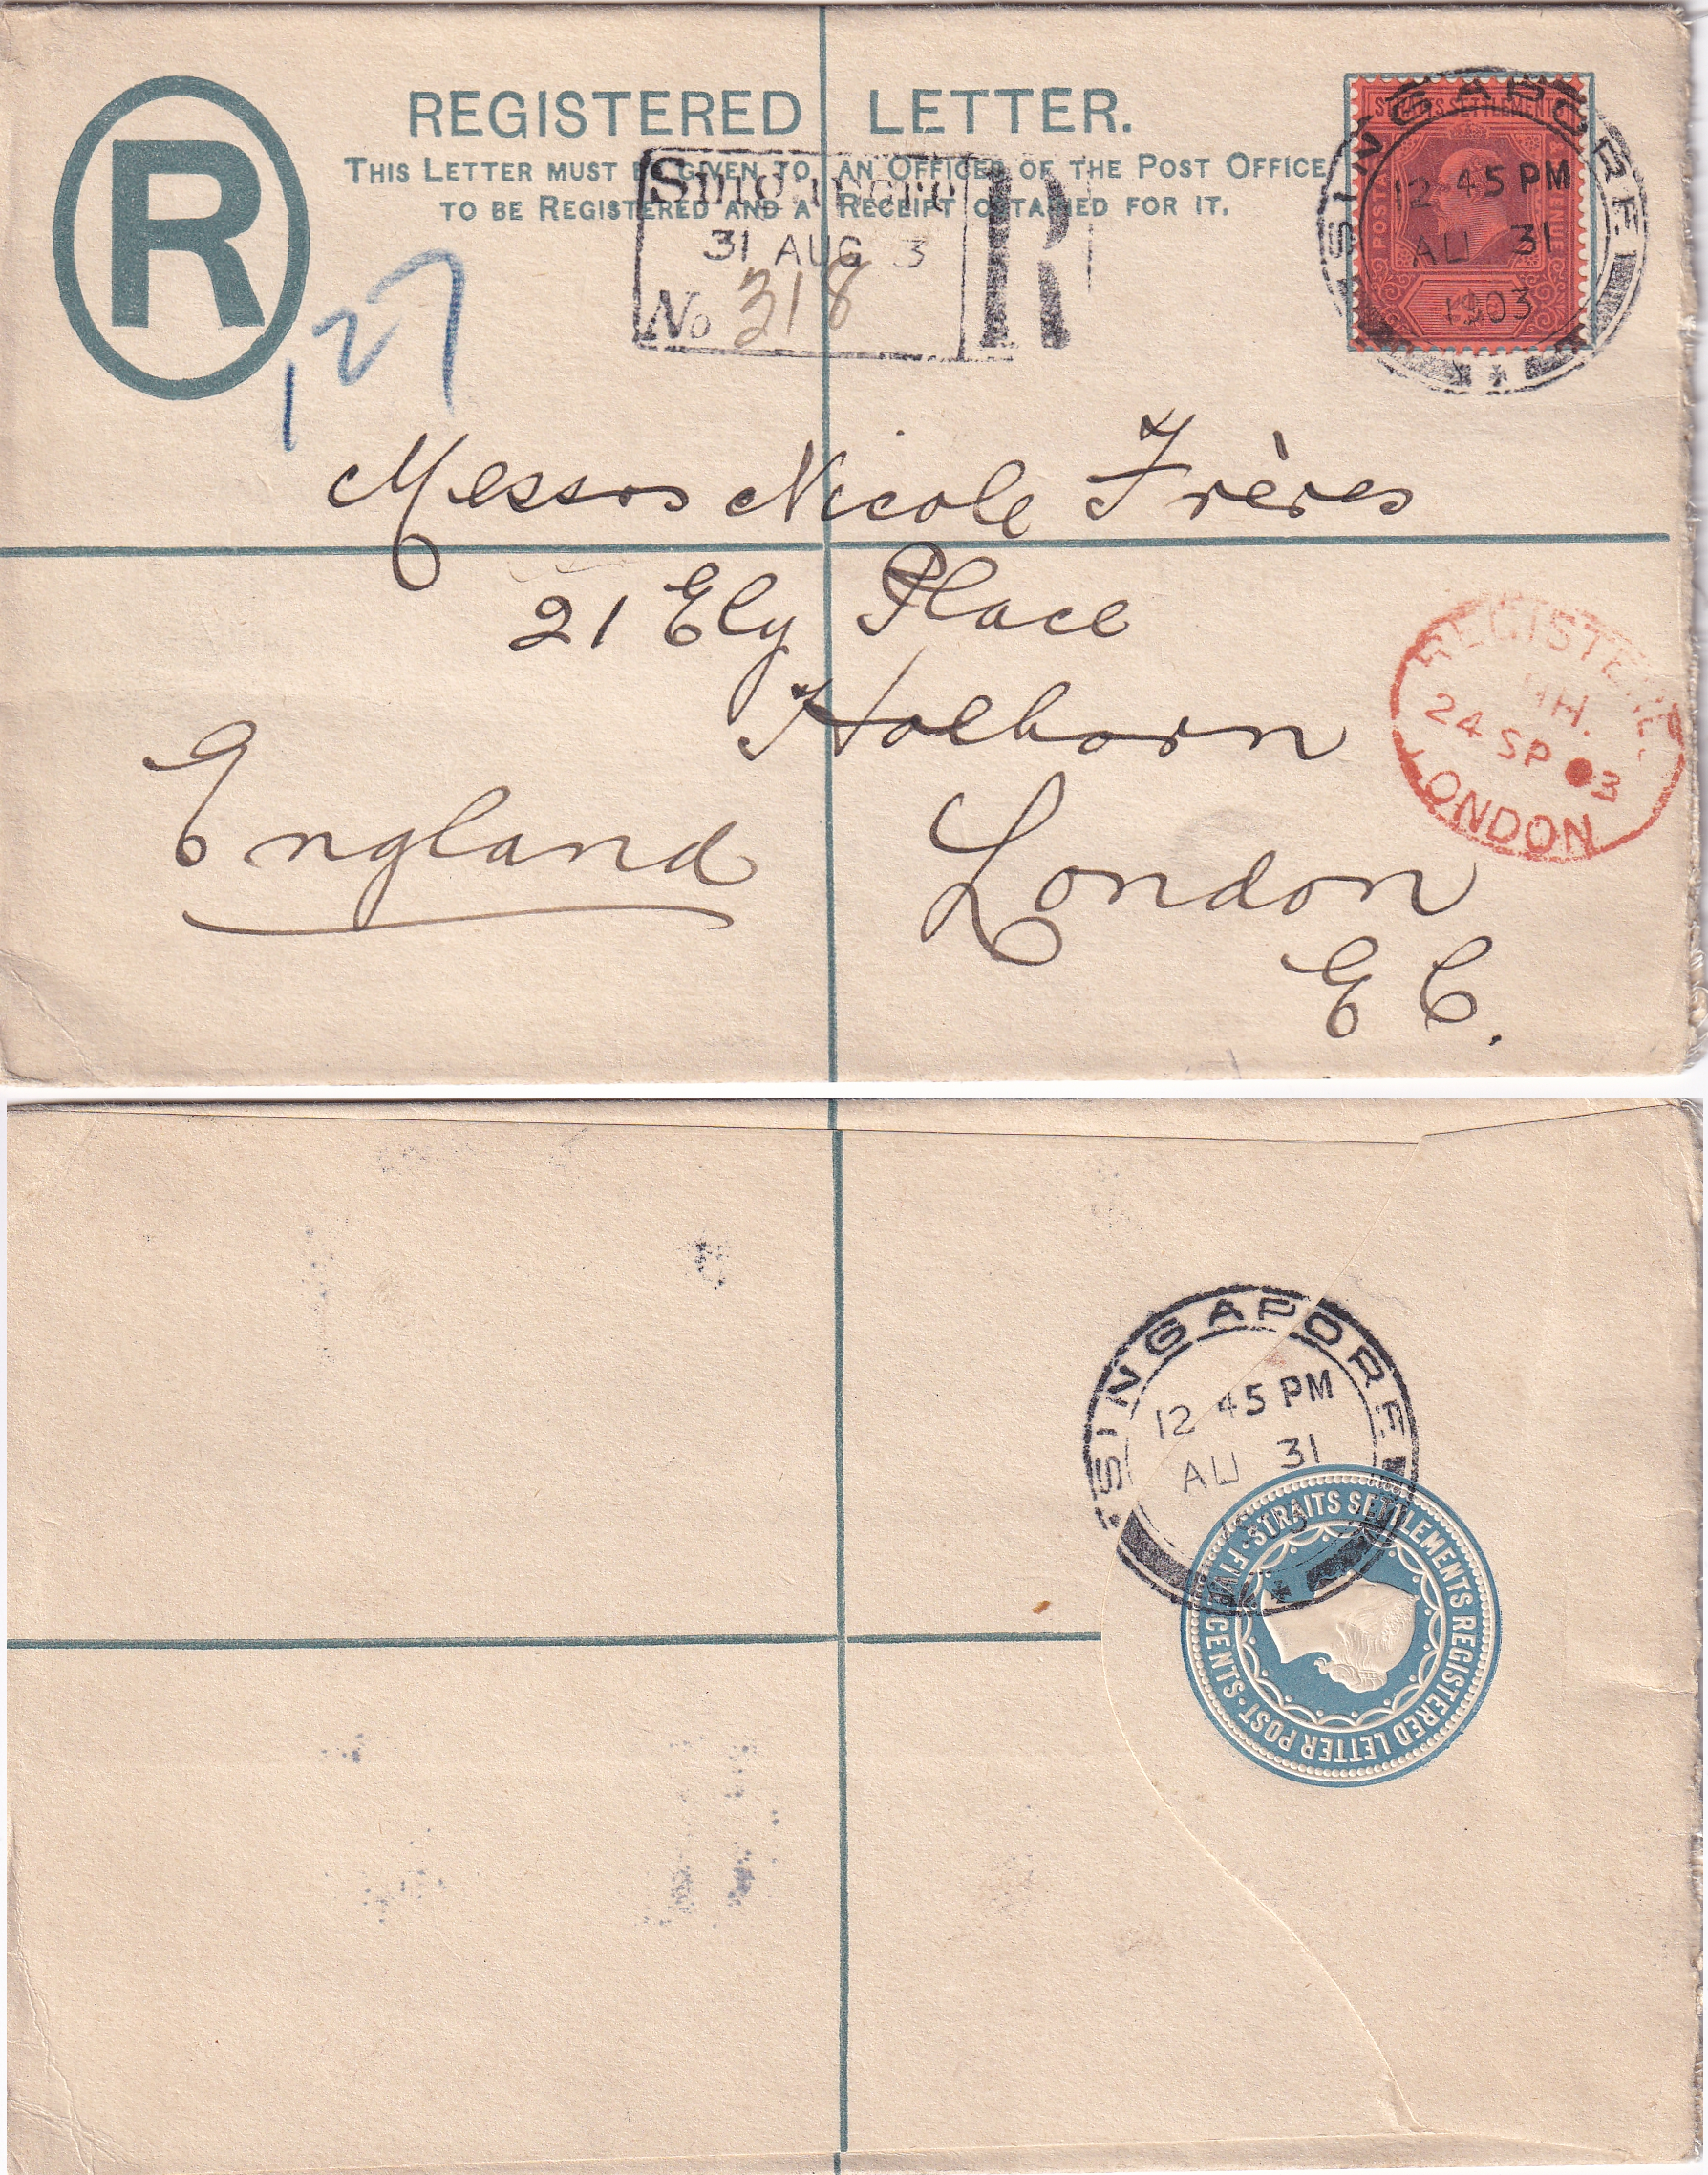 REGISTERED LETTER.
THIS LETTER MUST BE GIVEN TO AN OFFICER OF THE POST OFFICE
TO BE REGISTERED AND A RECEIPT OBTAINED FOR IT.
R
127
Singapore
31 AUG 3
No 318
R
STRAITS SETTLEMENTS
POSTAGE
REVENUE
SINGAPORE
12 45 PM
AU 31
1903
Messrs Nicole Frères
21 Ely Place
Holborn
London
E C.
England
REGISTERED
24 SP 03
LONDON
SINGAPORE
12 45 PM
AU 31
STRAITS SETTLEMENTS REGISTERED LETTER POST · FIVE CENTS ·